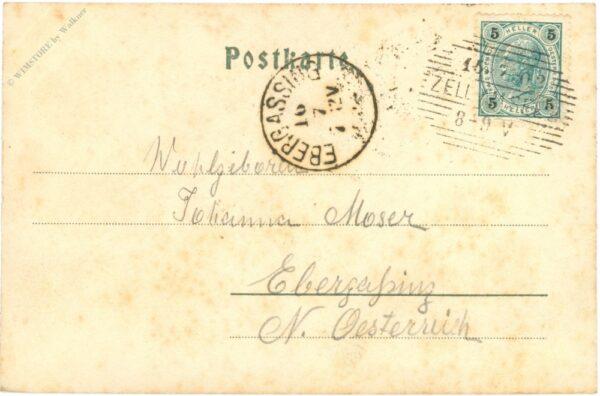 © WIMSTORE by Walkner
Postkarte
5 HELLER 5
5 HELLER 5
ZELL
8-9 V
EBERGASSING
Wohlgeboren
Johanna Moser
Ebergaßing
N. Oesterreich